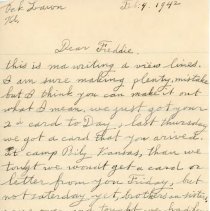 Feb. 9, 1942
Dear Freddie.
This is ma writing a view lines.
I am sure making plenty, mistake
but I think you can make it out
what I mean, we just got your
2 and card to Day, last thursday
we got a card that you arrived.
at camp Kansas, than we
we wouldn't get a card or
letter from you friday, but
not saturday yet, brothers an sister,